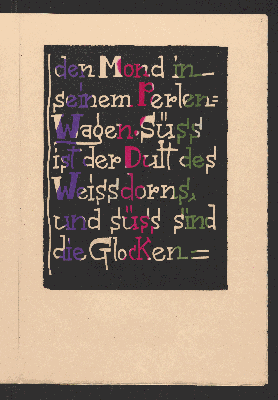 den Mond in
seinem Perlen=
Wagen. Süss
ist der Duft des
Weissdorns,
und süss sind
die Glocken =